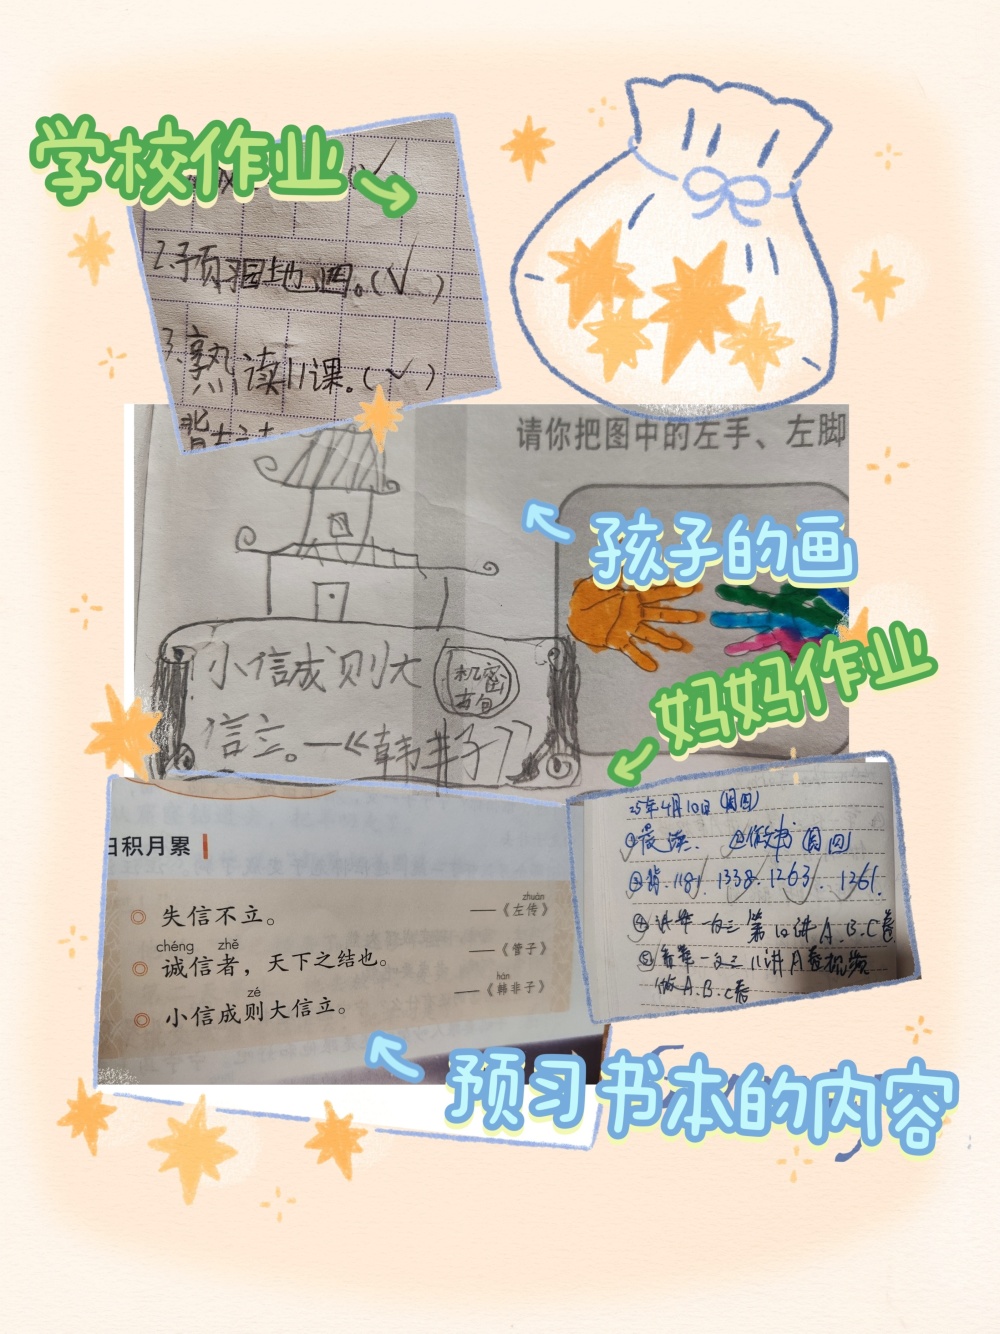 学校作业
2.预习园地四。(√)
3.熟读11课。(√)
请你把图中的左手、左脚
孩子的画
小信诚则大
信立。—《韩非子》
机密
妈妈作业
25年4月10日(周四)
①晨读.
③背.1181.1338.1263.1361.
第12讲A.B.C卷
做A.B.C卷
日积月累
失信不立。 ——《左传》
zhuàn
chéng zhě
诚信者，天下之结也。 ——《管子》
zé hán
小信成则大信立。 ——《韩非子》
预习书本的内容